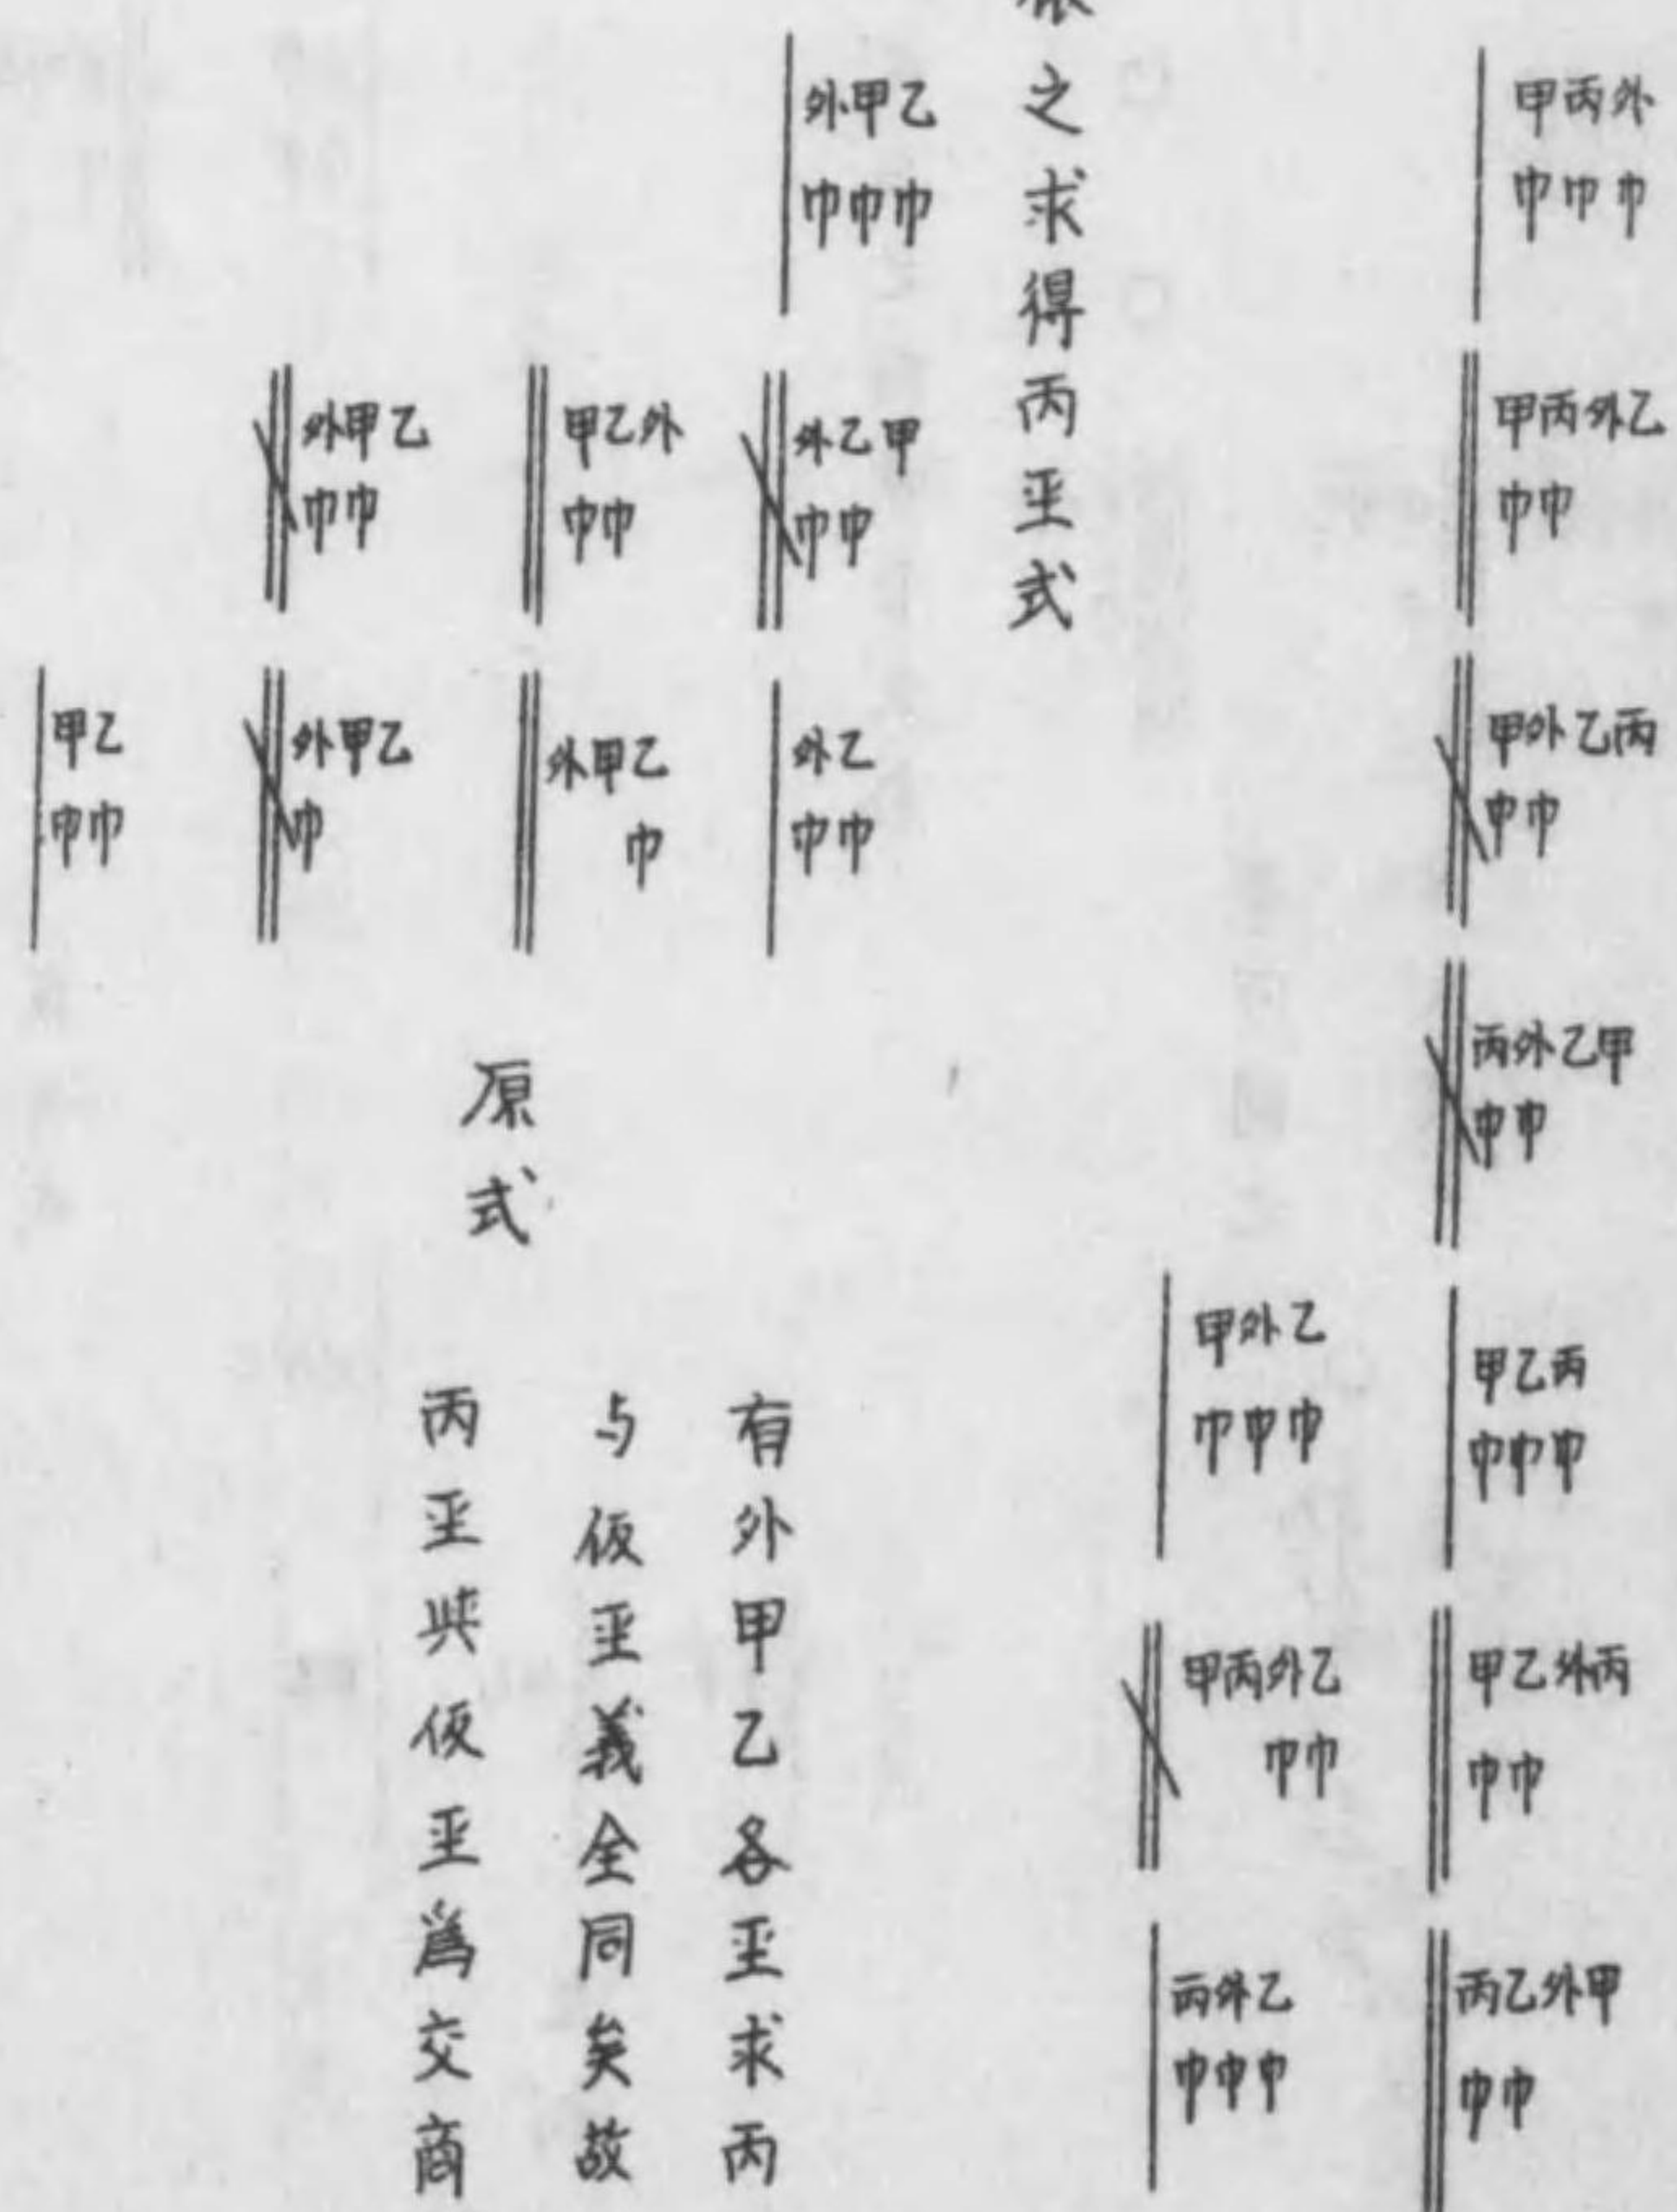 甲丙外
巾巾巾
甲丙外乙
巾巾
甲外乙丙
巾巾
丙外乙甲
巾巾
甲乙丙
巾巾巾
甲乙外丙
巾巾
丙乙外甲
巾巾
甲外乙
巾巾巾
甲丙外乙
巾巾
丙外乙
巾巾巾
之求得丙坙式
外甲乙
巾巾巾
外乙甲
巾巾
外乙
巾巾
甲乙外
巾巾
外甲乙
巾
外甲乙
巾巾
外甲乙
巾
甲乙
巾巾
原式
有外甲乙各坙求丙
与仮坙義全同矣故
丙坙與仮坙爲交商